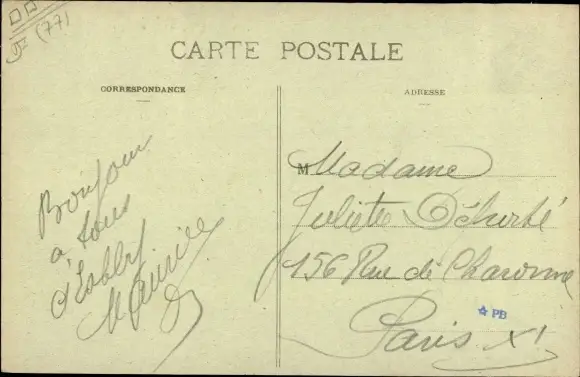 (77)
CARTE POSTALE
CORRESPONDANCE
ADRESSE
Bonjour
à tous
d'Esbly
Maurice
M Madame
Juliette
156 Rue de Charonne
Paris XI
PB